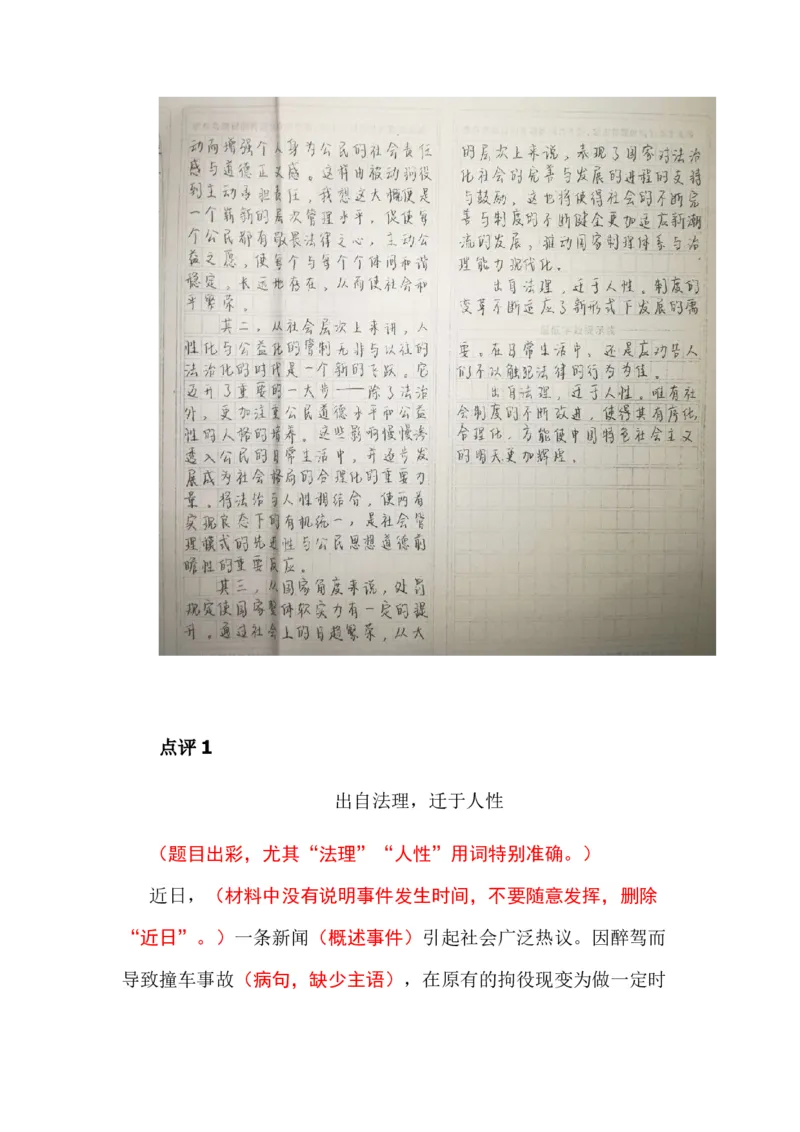 动而增强个人身为公民的社会责任
感与道德正义感。这样由被动的役
到主动承担责任，我想这大概便是
一个崭新的层次管理水平，促使每
个公民都有敬畏法律之心，主动公
益之愿，使每个与每个个体间和谐
稳定、长远地存在，从而使社会和
平繁荣。
其二，从社会层次上来讲，人
性化与公益化的管制无非与以往的
法治化的时代是一个新的飞跃。它
迈开了重要的一大步——除了法治
外，更加注重公民道德水平和公益
性的人格的培养。这些影响慢慢渗
透入公民的日常生活中，并逐步发
展成为社会格局的合理化的重要力
量。将法治与人性相结合，使两者
实现良态下的有机统一，是社会管
理模式的先进性与公民思想道德前
瞻性的重要反应。
其三，从国家角度来说，处罚
规定使国家整体软实力有一定的提
升。通过社会上的日趋繁荣，从大
的层次上来说，表现了国家对法治
化社会的完善与发展的进程的支持
与鼓励。这也将使得社会的不断完
善与制度的不断健全更加适应新潮
流的发展，推动国家制理体系与治
理能力现代化。
出自法理，迁于人性。制度的
变革不断适应了新形式下发展的需
要。在日常生活中，还是应劝告人
们不以触犯法律的行为为佳。
出自法理，迁于人性。唯有社
会制度的不断改进，使得其有序化、
合理化，方能使中国特色社会主义
的明天更加辉煌。
点评 1
出自法理，迁于人性
（题目出彩，尤其“法理”“人性”用词特别准确。）
近日，（材料中没有说明事件发生时间，不要随意发挥，删除
“近日”。）一条新闻（概述事件）引起社会广泛热议。因醉驾而
导致撞车事故（病句，缺少主语），在原有的拘役现变为做一定时